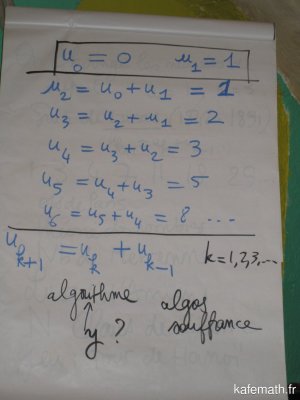 u₀ = 0 u₁ = 1
u₂ = u₀ + u₁ = 1
u₃ = u₂ + u₁ = 2
u₄ = u₃ + u₂ = 3
u₅ = u₄ + u₃ = 5
u₆ = u₅ + u₄ = 8 ...
uₖ₊₁ = uₖ + uₖ₋₁ k = 1, 2, 3, ...
algorithme algos
↑ souffrance
y ?
kafemath.fr